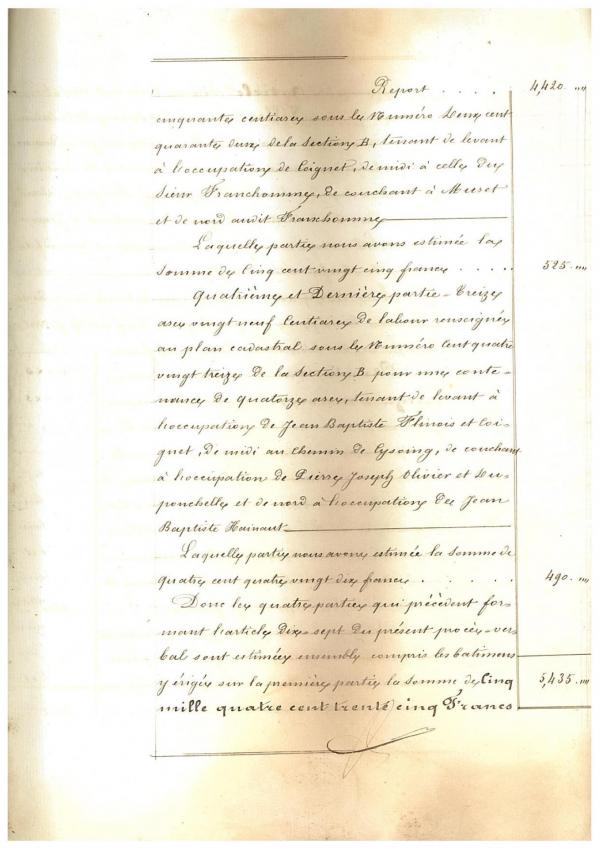 Report . . . . . 4,420. "" 
cinquante centiares sous le Numéro Deux cent
quarante deux de la Section B, tenant de levant
à l'occupation de Coignet, de midi à celle du
Sieur Franchomme, de couchant à Muset
et de nord audit Franchomme
Laquelle partie nous avons estimée la
somme de Cinq cent vingt cinq francs . . . . 525. ""
Quatrième et Dernière partie - Treize
ares vingt neuf Centiares de labour renseignée
au plan cadastral sous le Numéro Cent quatre
vingt treize de la Section B pour une conte-
nance de quatorze ares, tenant de levant à
l'occupation de Jean Baptiste Flinois et Coi-
gnet, de midi au Chemin de Cysoing, de couchant
à l'occupation de Pierre Joseph Olivier et Du-
ponchelle et de nord à l'occupation de Jean
Baptiste Hainaut
Laquelle partie nous avons estimée la somme de
quatre cent quatre vingt dix francs . . . . . 490. ""
Donc les quatre parties qui précèdent for-
mant l'article Dix-sept du présent procès-ver-
bal sont estimées ensemble compris les batimens
y érigés sur la première partie la somme de Cinq 5,435. ""
mille quatre cent trente cinq Francs